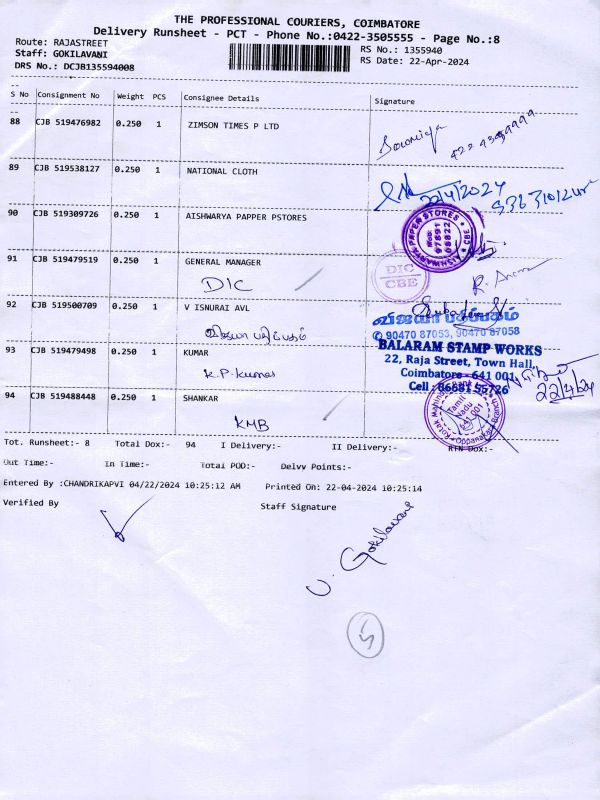 THE PROFESSIONAL COURIERS, COIMBATORE
Delivery Runsheet - PCT - Phone No.:0422-3505555 - Page No.:8
Route: RAJASTREET
Staff: GOKILAVANI
DRS No.: DCJB135594008
RS No.: 1355940
RS Date: 22-Apr-2024
S No Consignment No Weight PCS Consignee Details Signature
88 CJB 519476982 0.250 1 ZIMSON TIMES P LTD
89 CJB 519538127 0.250 1 NATIONAL CLOTH
22/4/2024
90 CJB 519309726 0.250 1 AISHWARYA PAPPER PSTORES
AISHWARYA PAPER STORES CBE
91 CJB 519479519 0.250 1 GENERAL MANAGER
DIC
DIC
CBE
92 CJB 519500709 0.250 1 V ISNURAI AVL
விஜயா பதிப்பகம்
விஜயா பதிப்பகம்
90470 87053, 90470 87058
93 CJB 519479498 1 KUMAR
0.250
K.P. Kumar
BALARAM STAMP WORKS
22, Raja Street, Town Hall,
Coimbatore - 641 001
Cell : 8681 55726
22/4/24
94 CJB 519488448 0.250 1 SHANKAR
KMB
Kotak Mahindra Bank
Tamil Nadu
641 001
Tot. Runsheet:- 8 Total Dox:- 94 I Delivery:- II Delivery:- RTN Dox:-
Out Time:- In Time:- Total POD:- Delvv Points:-
Entered By :CHANDRIKAPVI 04/22/2024 10:25:12 AM Printed On: 22-04-2024 10:25:14
Verified By Staff Signature
U. Gokilavani
5